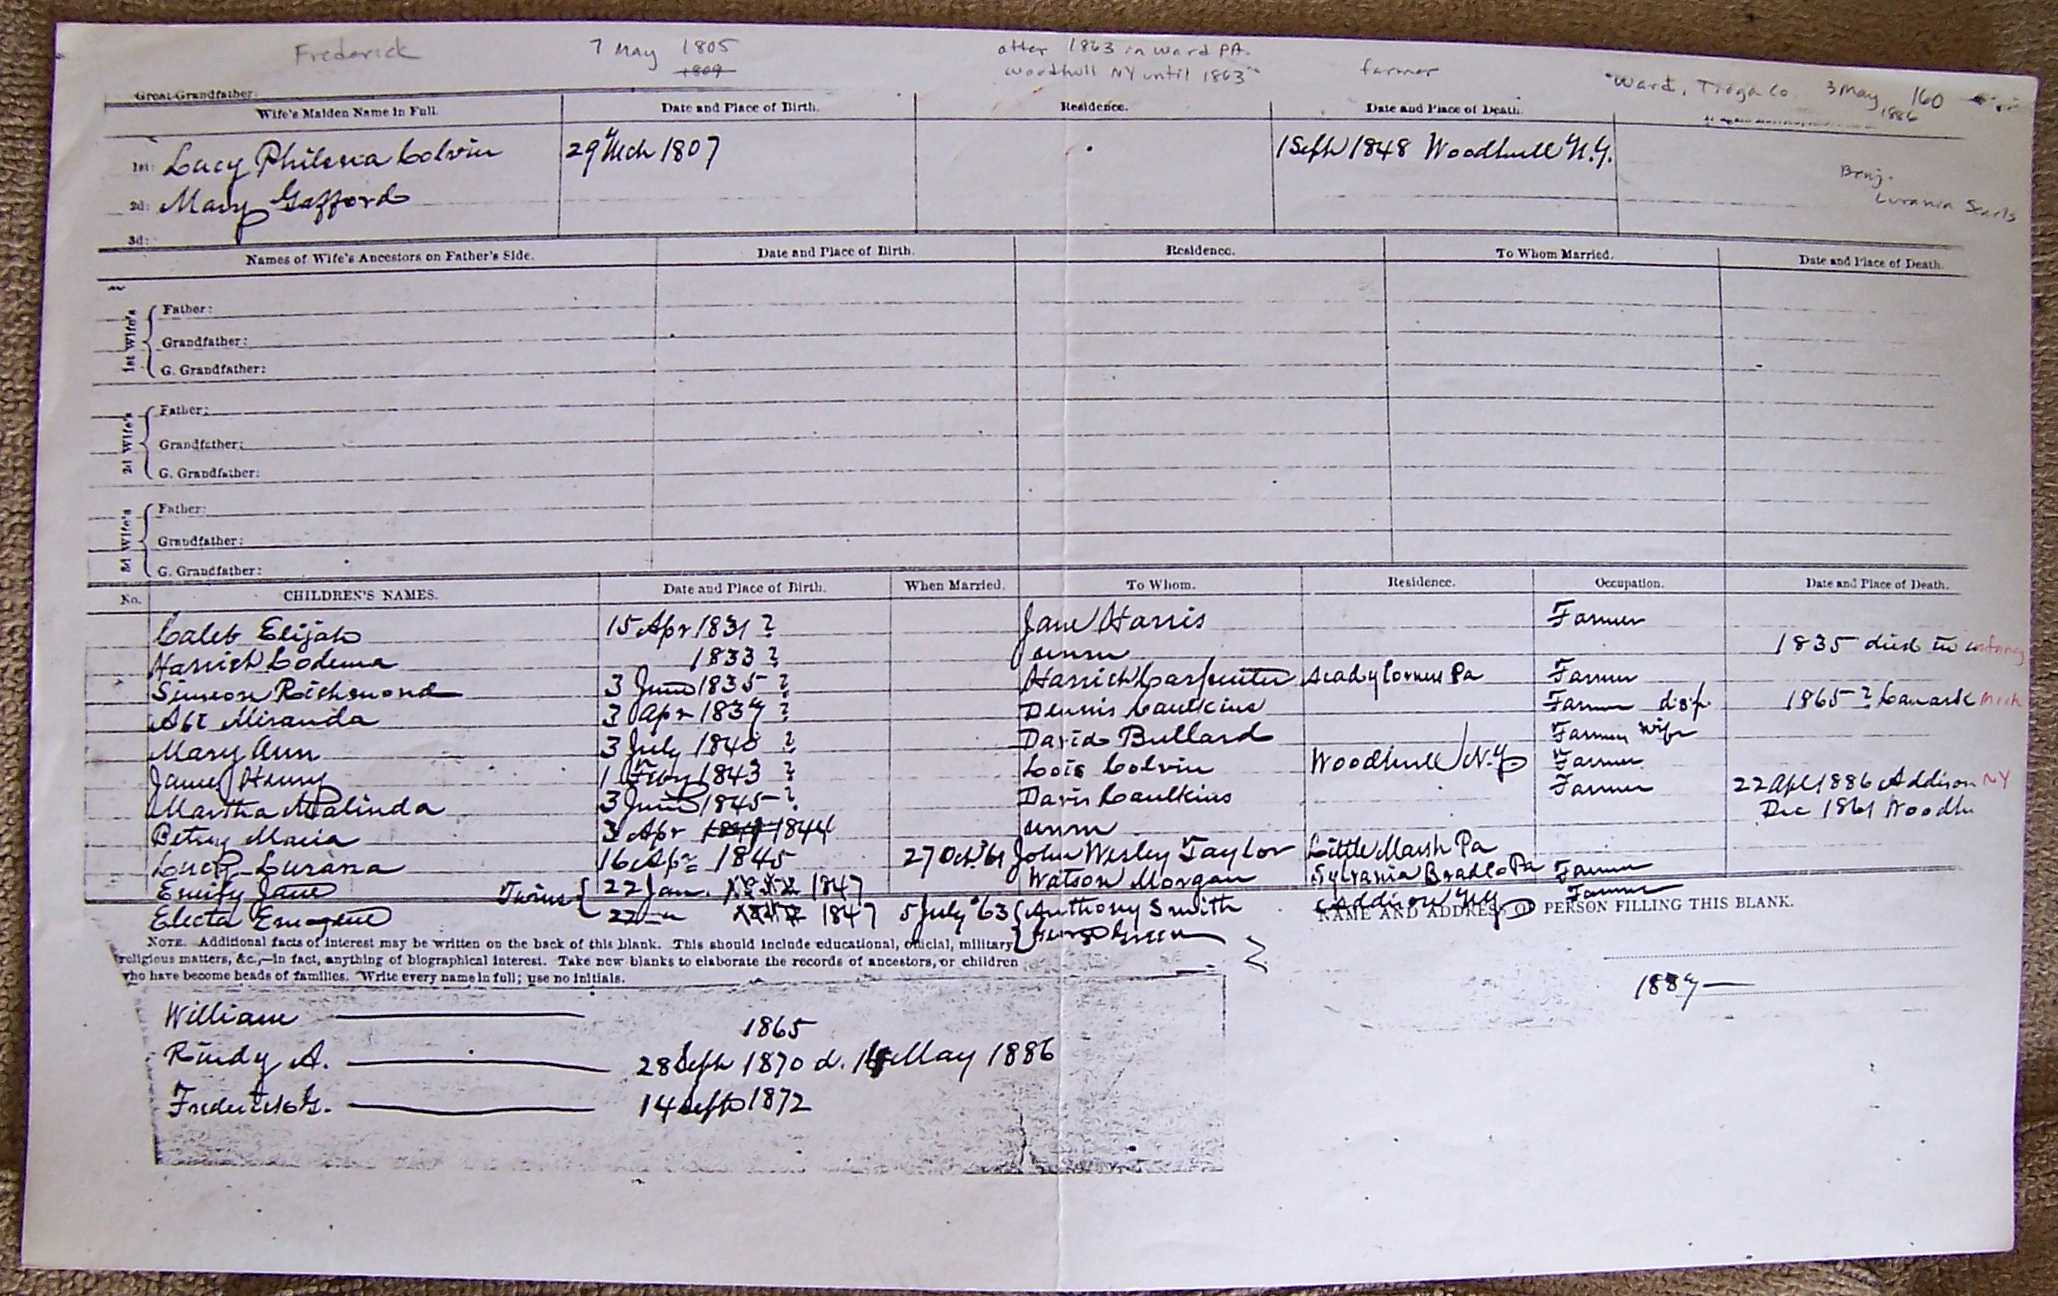 Frederick 7 May 1805 after 1863 in Ward PA. farmer Ward, Tioga Co. 3 May 1886 160
1809 Woodhull NY until 1863
Great-Grandfather:
Wife's Maiden Name in Full. Date and Place of Birth. Residence. Date and Place of Death.
1st: Lucy Philena Colvin 29 Mch 1807 1 Sept 1848 Woodhull N.Y.
Benj.
2d: Mary Gafford Lurania Searls
3d:
Names of Wife's Ancestors on Father's Side. Date and Place of Birth. Residence. To Whom Married. Date and Place of Death.
1st Wife's
Father:
Grandfather:
G. Grandfather:
2d Wife's
Father:
Grandfather:
G. Grandfather:
3d Wife's
Father:
Grandfather:
G. Grandfather:
No. CHILDREN'S NAMES. Date and Place of Birth. When Married. To Whom. Residence. Occupation. Date and Place of Death.
Caleb Elijah 15 Apr 1831 ? Jane Harris Farmer
Harriet Lodema 1833 ? unm 1835 died in infancy
Simeon Richmond 3 June 1835 ? Harriet Carpenter Corners Pa Farmer
Miranda 3 Apr 1837 ? Dennis Caulkins Farmer 1865 ? Mich
Mary Ann 3 July 1840 ? David Bullard Farmer wife
James Henry 1 Feby 1843 ? Lois Colvin Woodhull N.Y Farmer
Martha Malinda 3 June 1845 ? Davis Caulkins Farmer 22 Apl 1886 Addison NY
Betsey Maria 3 Apr 1844 unm Dec 1861 Woodhu
Lucy Lurana 16 Apr 1845 27 Oct '61 John Wesley Taylor Little Marsh Pa
Emily Jane Twins 22 Jan. 1847 Watson Morgan Sylvania Pa Farmer
Electa Emogene 22 " 1847 5 July '63 Anthony Smith Addison NY Farmer
NAME AND ADDRESS OF PERSON FILLING THIS BLANK.
George Green
NOTE. Additional facts of interest may be written on the back of this blank. This should include educational, official, military
religious matters, &c.,—in fact, anything of biographical interest. Take new blanks to elaborate the records of ancestors, or children
who have become heads of families. Write every name in full; use no initials.
1887—
William 1865
Rindy A. 28 Sept 1870 d. May 1886
Frederick G. 14 Sept 1872